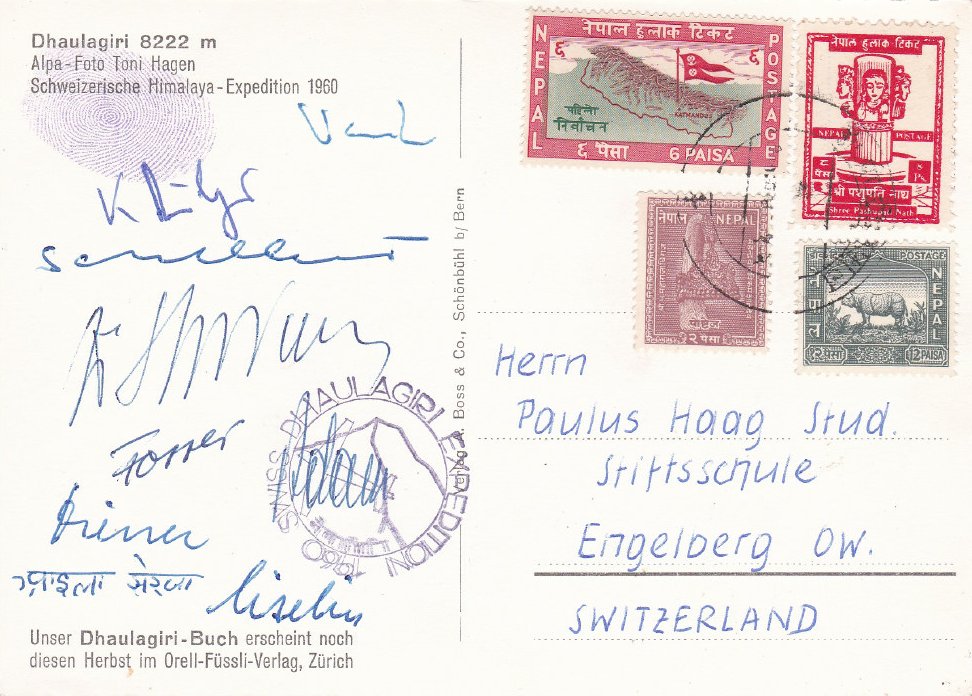 Dhaulagiri 8222 m
Alpa-Foto Toni Hagen
Schweizerische Himalaya-Expedition 1960
Forrer
Diener
Unser Dhaulagiri-Buch erscheint noch
diesen Herbst im Orell-Füssli-Verlag, Zürich
SWISS DHAULAGIRI EXPEDITION 1960
Boss & Co., Schönbühl b/Bern
नेपाल हुलाक टिकट
NEPAL
POSTAGE
६
६
KATMANDU
पहिलो
निर्वाचन
६ पैसा 6 PAISA
नेपाल हुलाक टिकट
NEPAL POSTAGE
श्री पशुपति नाथ
Shree Pashupati Nath
नेपाल NEPAL
२ पैसा
POSTAGE
नेपाल
NEPAL
१२ पैसा 12 PAISA
Herrn
Paulus Haag Stud.
Stiftsschule
Engelberg OW.
SWITZERLAND